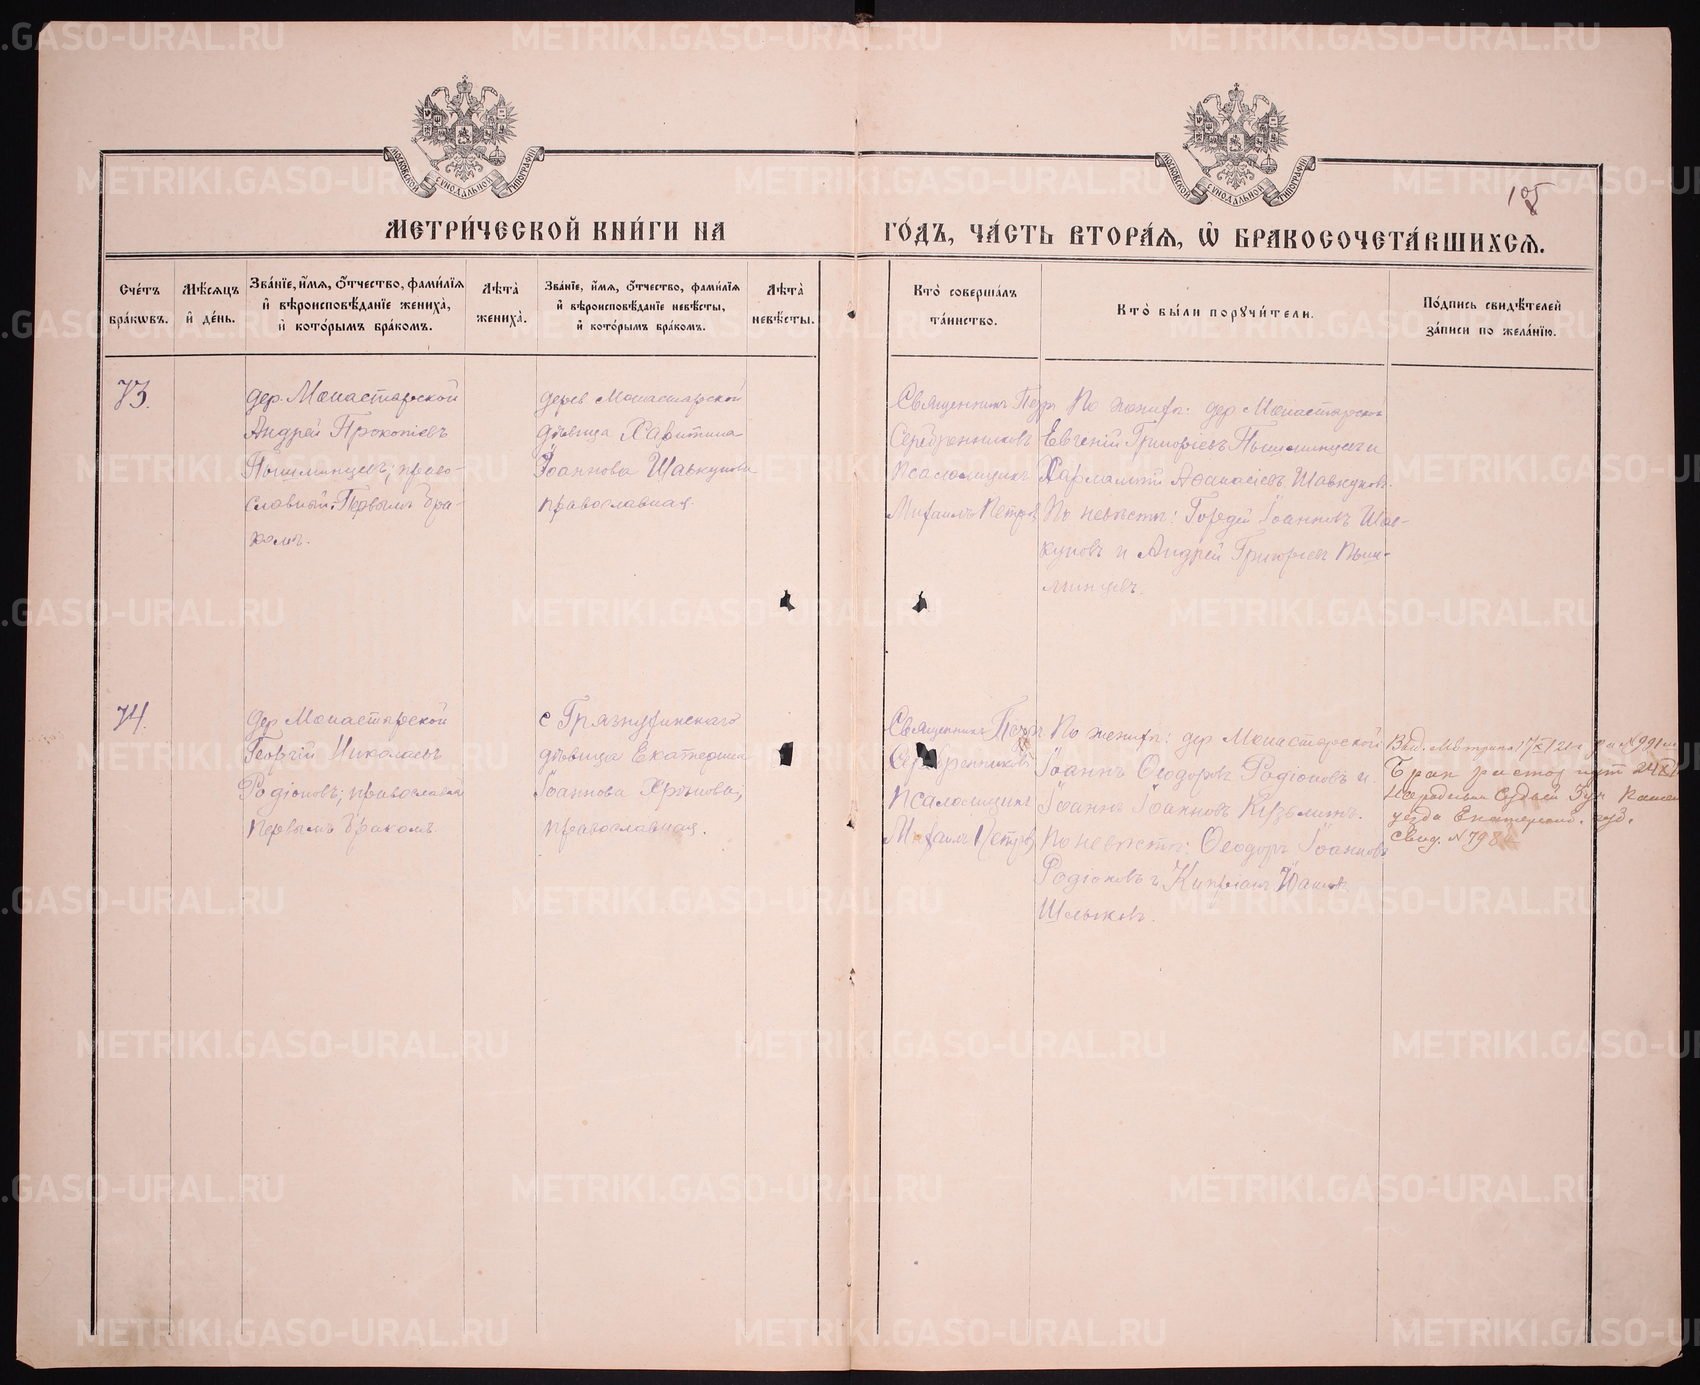 МОСКОВСКОЙ СУНОДАЛЬНОЙ ТИПОГРАФІИ
МОСКОВСКОЙ СУНОДАЛЬНОЙ ТИПОГРАФІИ
105
МЕТРИ́ЧЕСКОЙ КНИ́ГИ НА
ГО́ДЪ, ЧА́СТЬ ВТОРА́Ѧ, Ѡ҆ БРАКОСОЧЕТА́ВШИХСѦ.
Сче́тъ
бра́кѡвъ.
Мѣ́сѧцъ
и҆ де́нь.
Зва́нїе, и҆́мѧ, ѻ҆́тчество, фами́лїѧ
и҆ вѣроисповѣ́данїе жениха̀,
и҆ кото́рымъ бра́комъ.
Лѣ́та̀
жениха̀.
Зва́нїе, и҆́мѧ, ѻ҆́тчество, фами́лїѧ
и҆ вѣроисповѣ́данїе невѣ́сты,
и҆ кото́рымъ бра́комъ.
Лѣ́та̀
невѣ́сты.
Кто̀ соверша́лъ
та́инство.
Кто̀ бы́ли порꙋчи́тели.
По́дпись свидѣ́телей
за́писи по жела́нїю.
73.
дер. Монастырской
Андрей Прокопіевъ
Пышминцевъ; право-
славный; Первымъ бра-
комъ.
дерев Монастырской
дѣвица Харитина
Іоаннова Шавкунова
православная.
Священникъ Петръ
Серебренниковъ
Псаломщикъ
Михаилъ Петровъ
По женихѣ: дер Монастырской
Евгеній Григоріевъ Пышминцевъ и
Аѳанасіевъ Шавкуновъ.
По невѣстѣ: Гордей Іоанновъ Шав-
куновъ и Андрей Григоріевъ Пыш-
минцевъ.
74.
дер Монастырской
Георгій Николаевъ
Родіоновъ; православный
первымъ бракомъ
с Грязнухинскаго
дѣвица Екатерина
Іоаннова
православная.
Священникъ Петръ
Серебренниковъ
Псаломщикъ
Михаилъ Петровъ
По женихѣ: дер Монастырской
Іоаннъ Ѳеодоровъ Родіоновъ и
Іоаннъ Іоанновъ Кузьминъ.
По невѣстѣ: Ѳеодоръ Іоанновъ
Родіоновъ и Кипріанъ
Шлыковъ.
Выд. Метрика 17/XI 21 г № 991
Брак расторгнут
Народным Судьей
уезда Екатеринб. губ.
Свид. № 798
METRIKI.GASO-URAL.RU